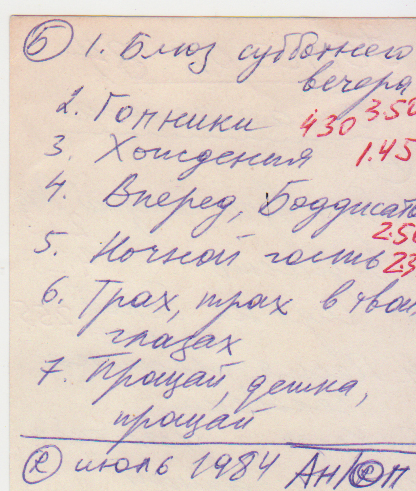 Б 1. Блюз субботнего
вечера
2. Гопники 4.30 3.50
3. Хождения 1.45
4. Вперед, Боддисатв
5. Ночной гость 2.50
6. Трах, трах в твоих 2.3
глазах
7. Прощай, детка,
прощай
июль 1984